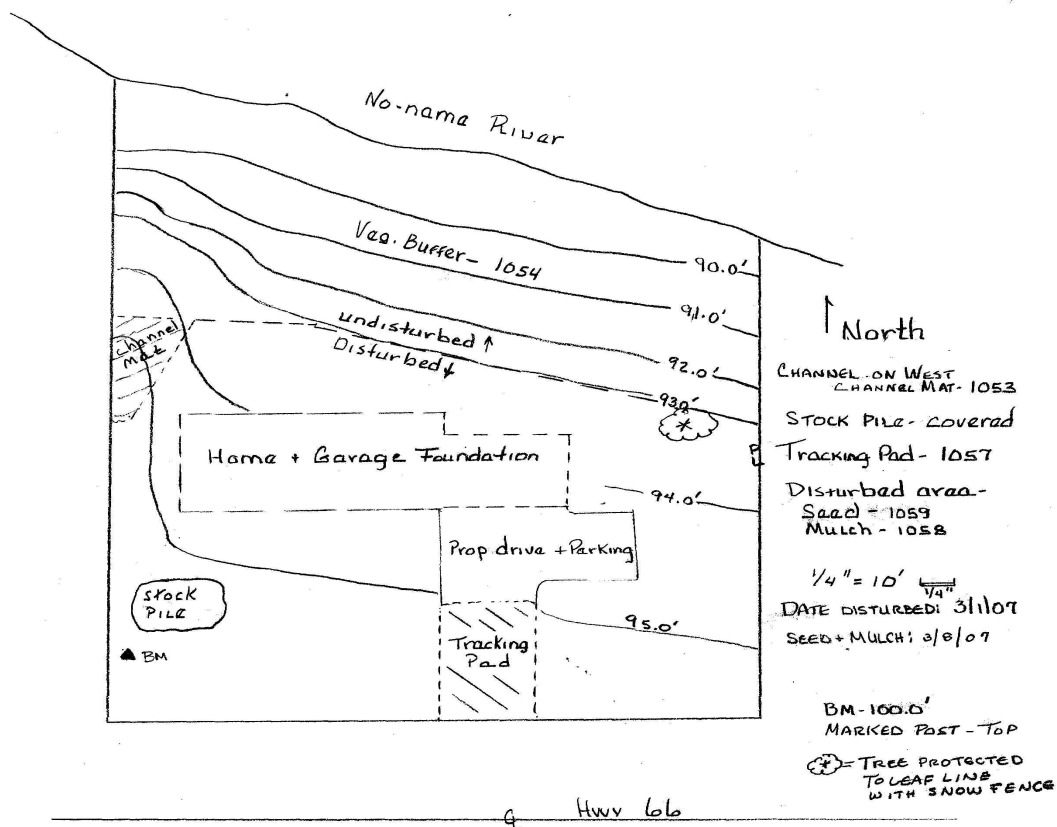 No-name River
Veg. Buffer- 1054
90.0'
91.0'
undisturbed ↑
Disturbed ↓
92.0'
93.0'
channel
mat
Home + Garage Foundation
94.0'
Prop drive + Parking
STOCK
PILE
95.0'
Tracking
Pad
▲ BM
PL
North
CHANNEL ON WEST
CHANNEL MAT- 1053
STOCK PILE- covered
Tracking Pad- 1057
Disturbed area-
Seed - 1059
Mulch - 1058
1/4" = 10'
1/4"
DATE DISTURBED: 3/1/07
SEED + MULCH: 3/8/07
BM-100.0'
MARKED POST - TOP
= TREE PROTECTED
TO LEAF LINE
WITH SNOW FENCE
Hwy 66